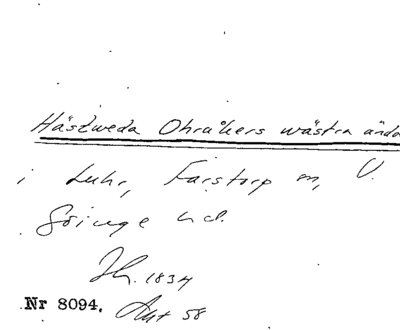 Hästweda Ohråkers wästra ända
i Luhr, Farstorp m, V.
Göinge hd.
Jh. 1834
Nr 8094. Aut 58